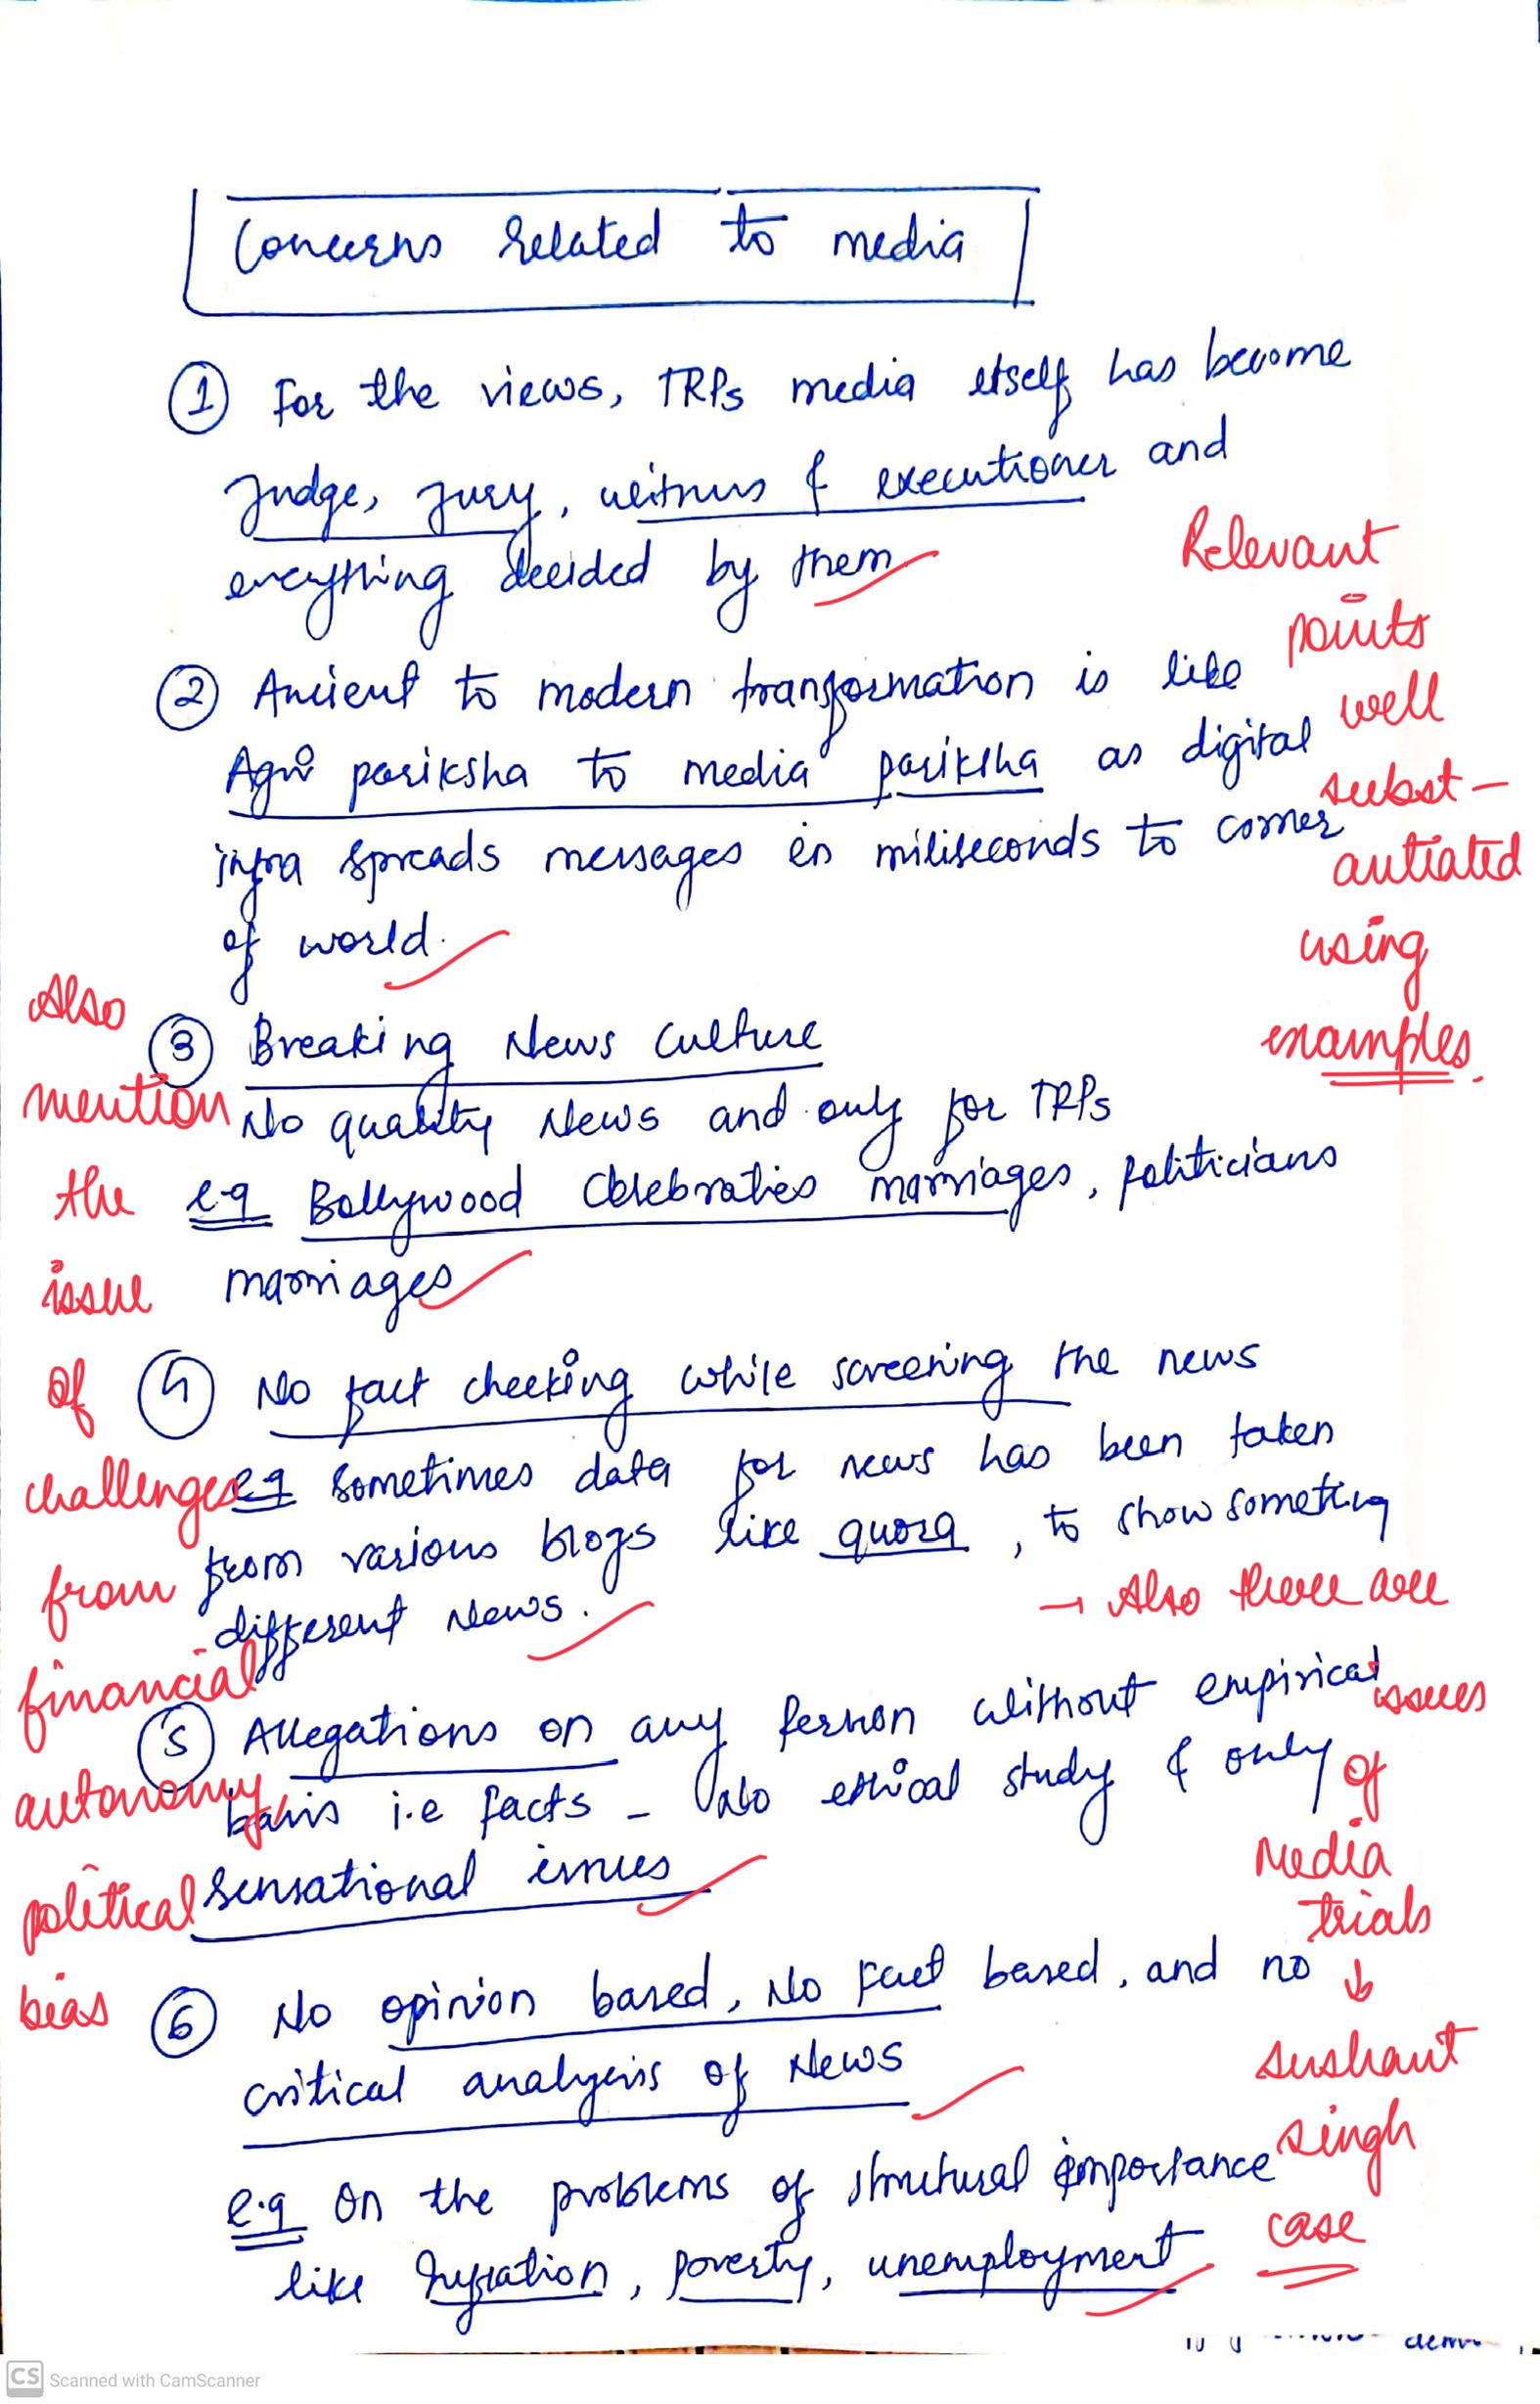 Concerns related to media
① For the views, TRPs media itself has become
Judge, Jury, witness & executioner and
everything decided by them
Relevant
points
well
subst-
antiated
using
examples.
② Ancient to modern transformation is like
Agni pariksha to media pariksha as digital
infra spreads messages in miliseconds to corner
of world.
③ Breaking News Culture
No quality News and only for TRPs
e.g Bollywood Celebraties marriages, politicians
marriages
④ No fact checking while screening the news
e.g sometimes data for news has been taken
from various blogs like quora, to show something
different News.
Also
mention
the
issue
of
challenges
from
financial
autonomy,
political
bias
⑤ Allegations on any person without empirical
basis i.e facts - No ethical study & only
sensational issues
→ Also there are
issues
of
Media
trials
↓
sushant
singh
case
⑥ No opinion based, No Fact based, and no
critical analysis of News
e.g on the problems of structural importance
like Inflation, poverty, unemployment
CS Scanned with CamScanner